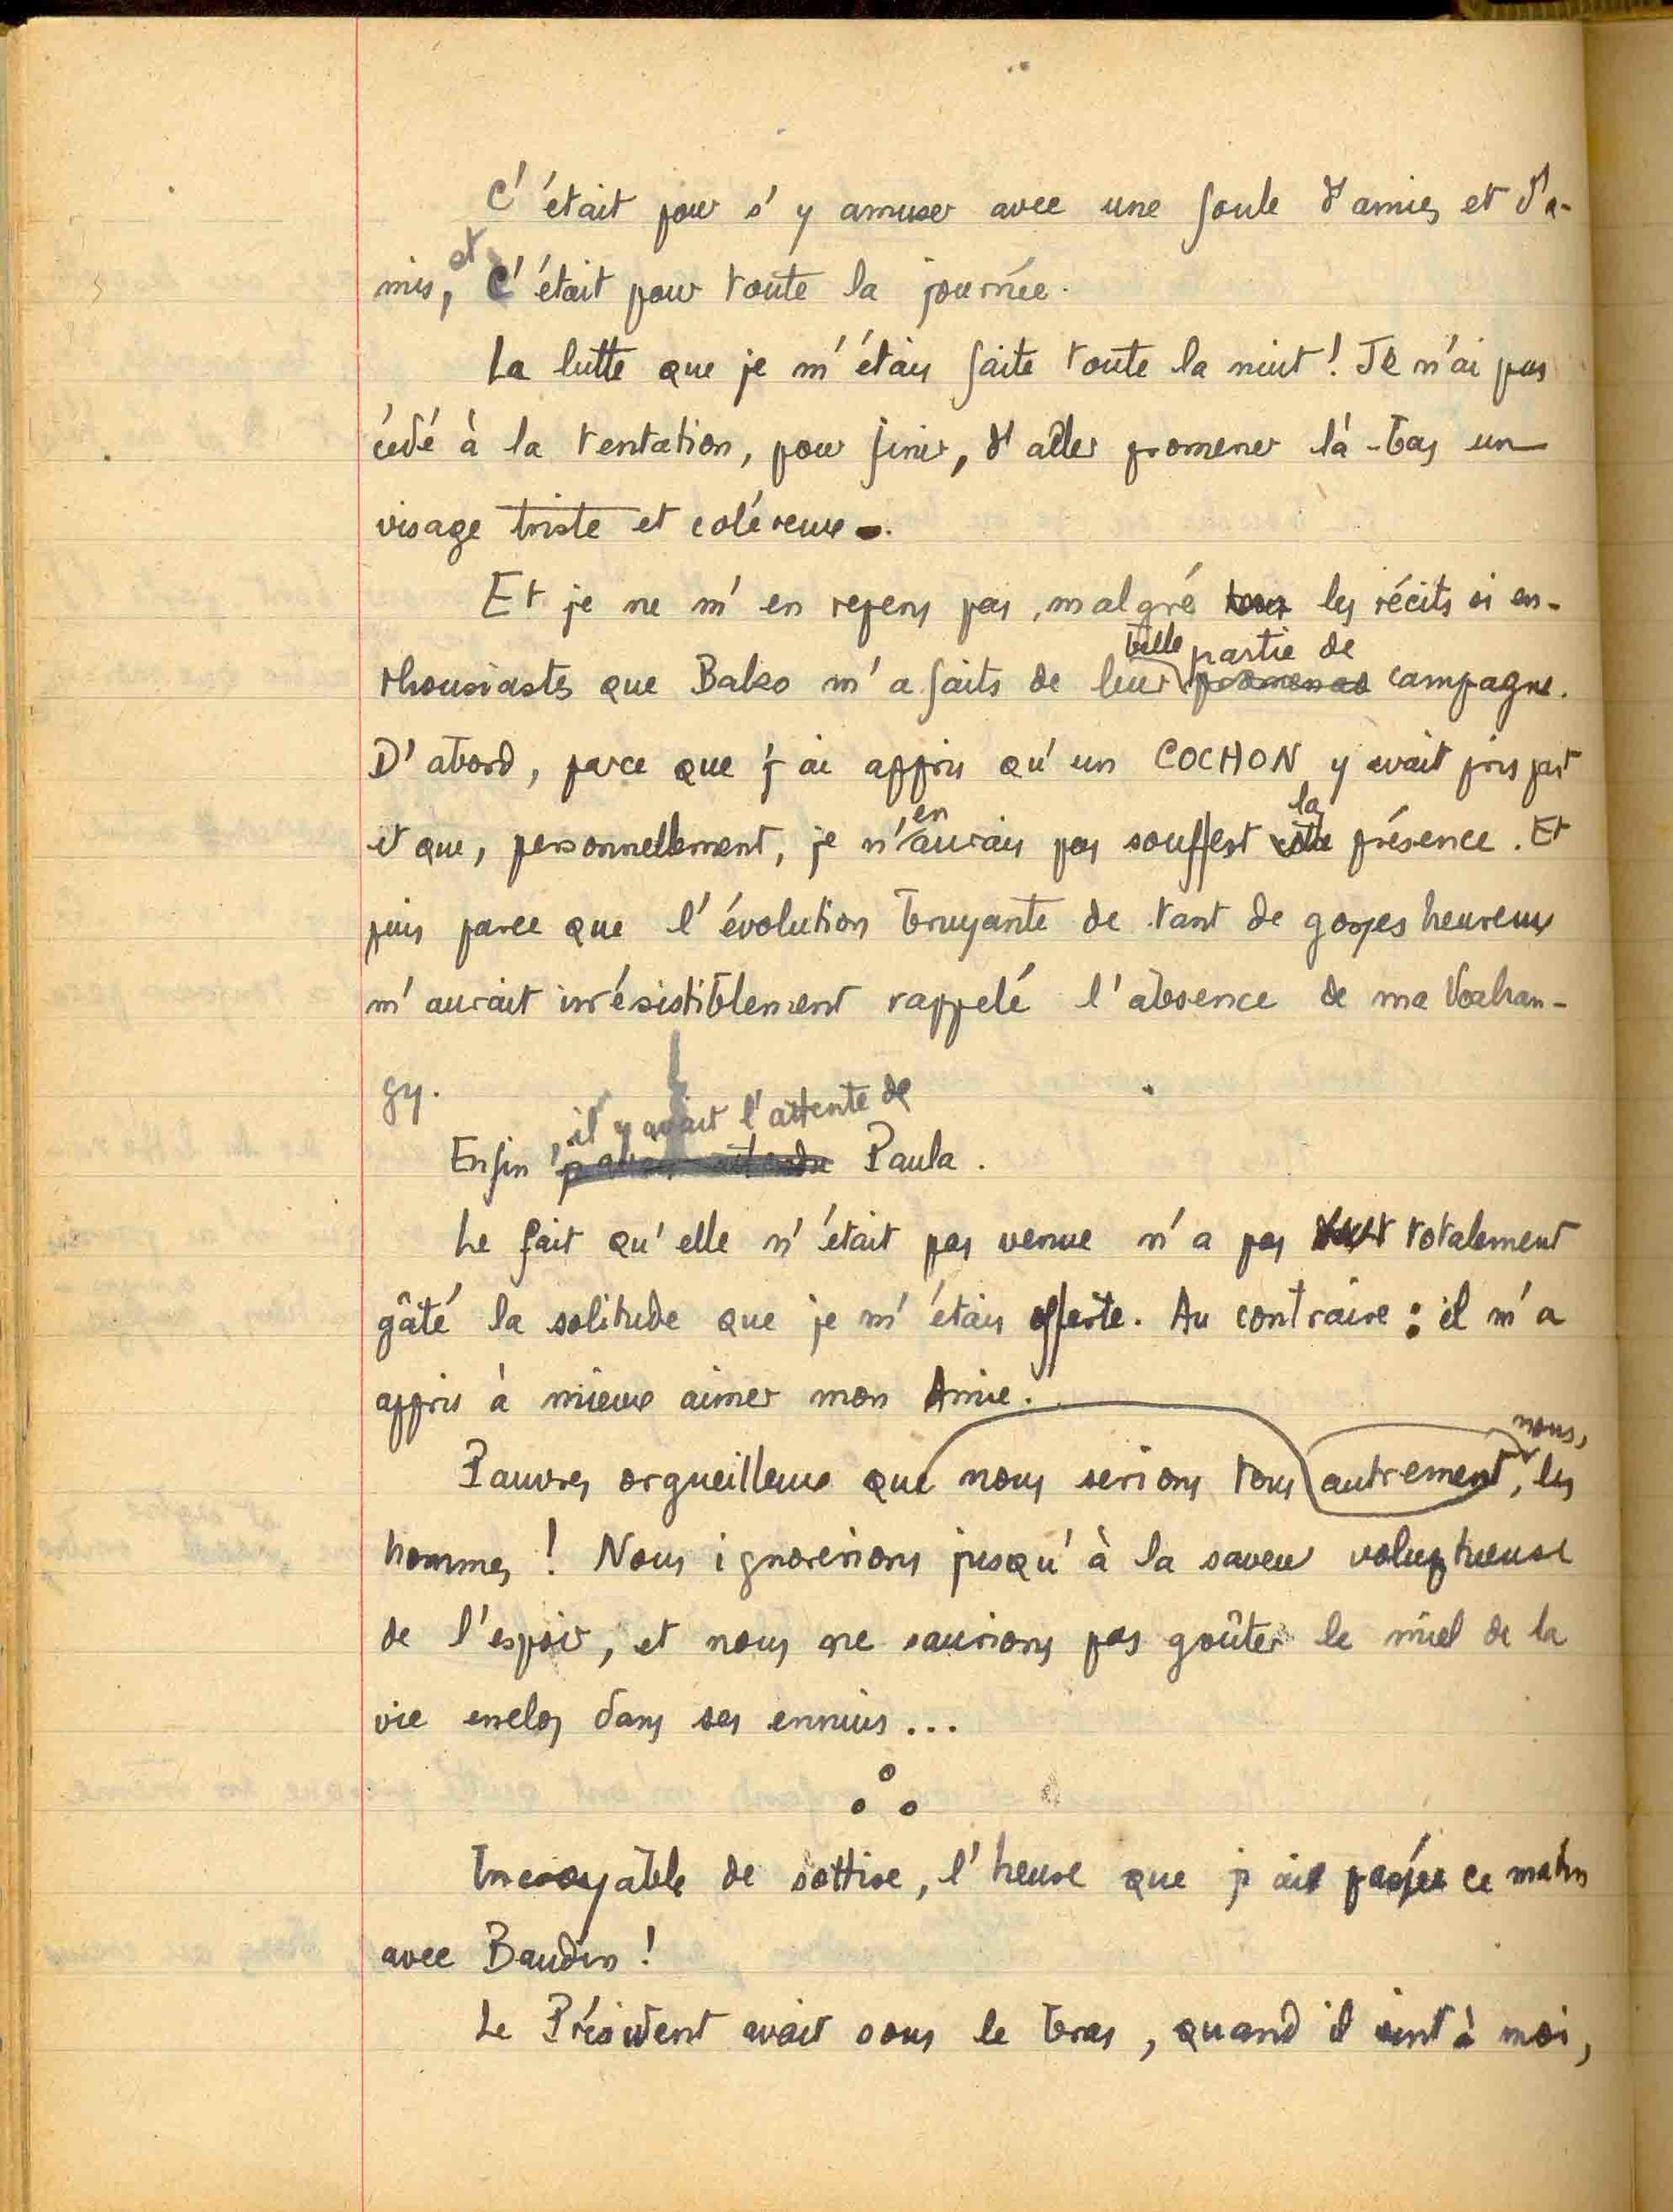 C'était pour s'y amuser avec une foule d'amies et d'a-
mis, et c'était pour toute la journée.
La lutte que je m'étais faite toute la nuit! Je n'ai pas
cédé à la tentation, pour finir, d'aller promener là-bas un
visage triste et coléreux.
Et je ne m'en repens pas, malgré tous les récits si en-
belle partie de
thousiastes que Balzo m'a faits de leur promenade campagne.
D'abord, parce que j'ai appris qu'un COCHON y avait pris part
en la
et que, personnellement, je n'aurais pas souffert cette présence. Et
puis parce que l'évolution bruyante de tant de gosses heureux
m'aurait irrésistiblement rappelé l'absence de ma Voahan-
gy.
, il y avait l'attente de
Enfin j'avais attendu Paula.
Le fait qu'elle n'était pas venue n'a pas totalement
gâté la solitude que je m'étais offerte. Au contraire : il m'a
appris à mieux aimer mon Amie.
nous,
Pauvres orgueilleux que nous serions tous autrement, les
hommes! Nous ignorerions jusqu'à la saveur voluptueuse
de l'espoir, et nous ne saurions pas goûter le miel de la
vie enclos dans ses ennuis...
Incroyable de sottise, l'heure que j'ai passée ce matin
avec Baudin!
Le Président avait sous le bras, quand il vint à moi,